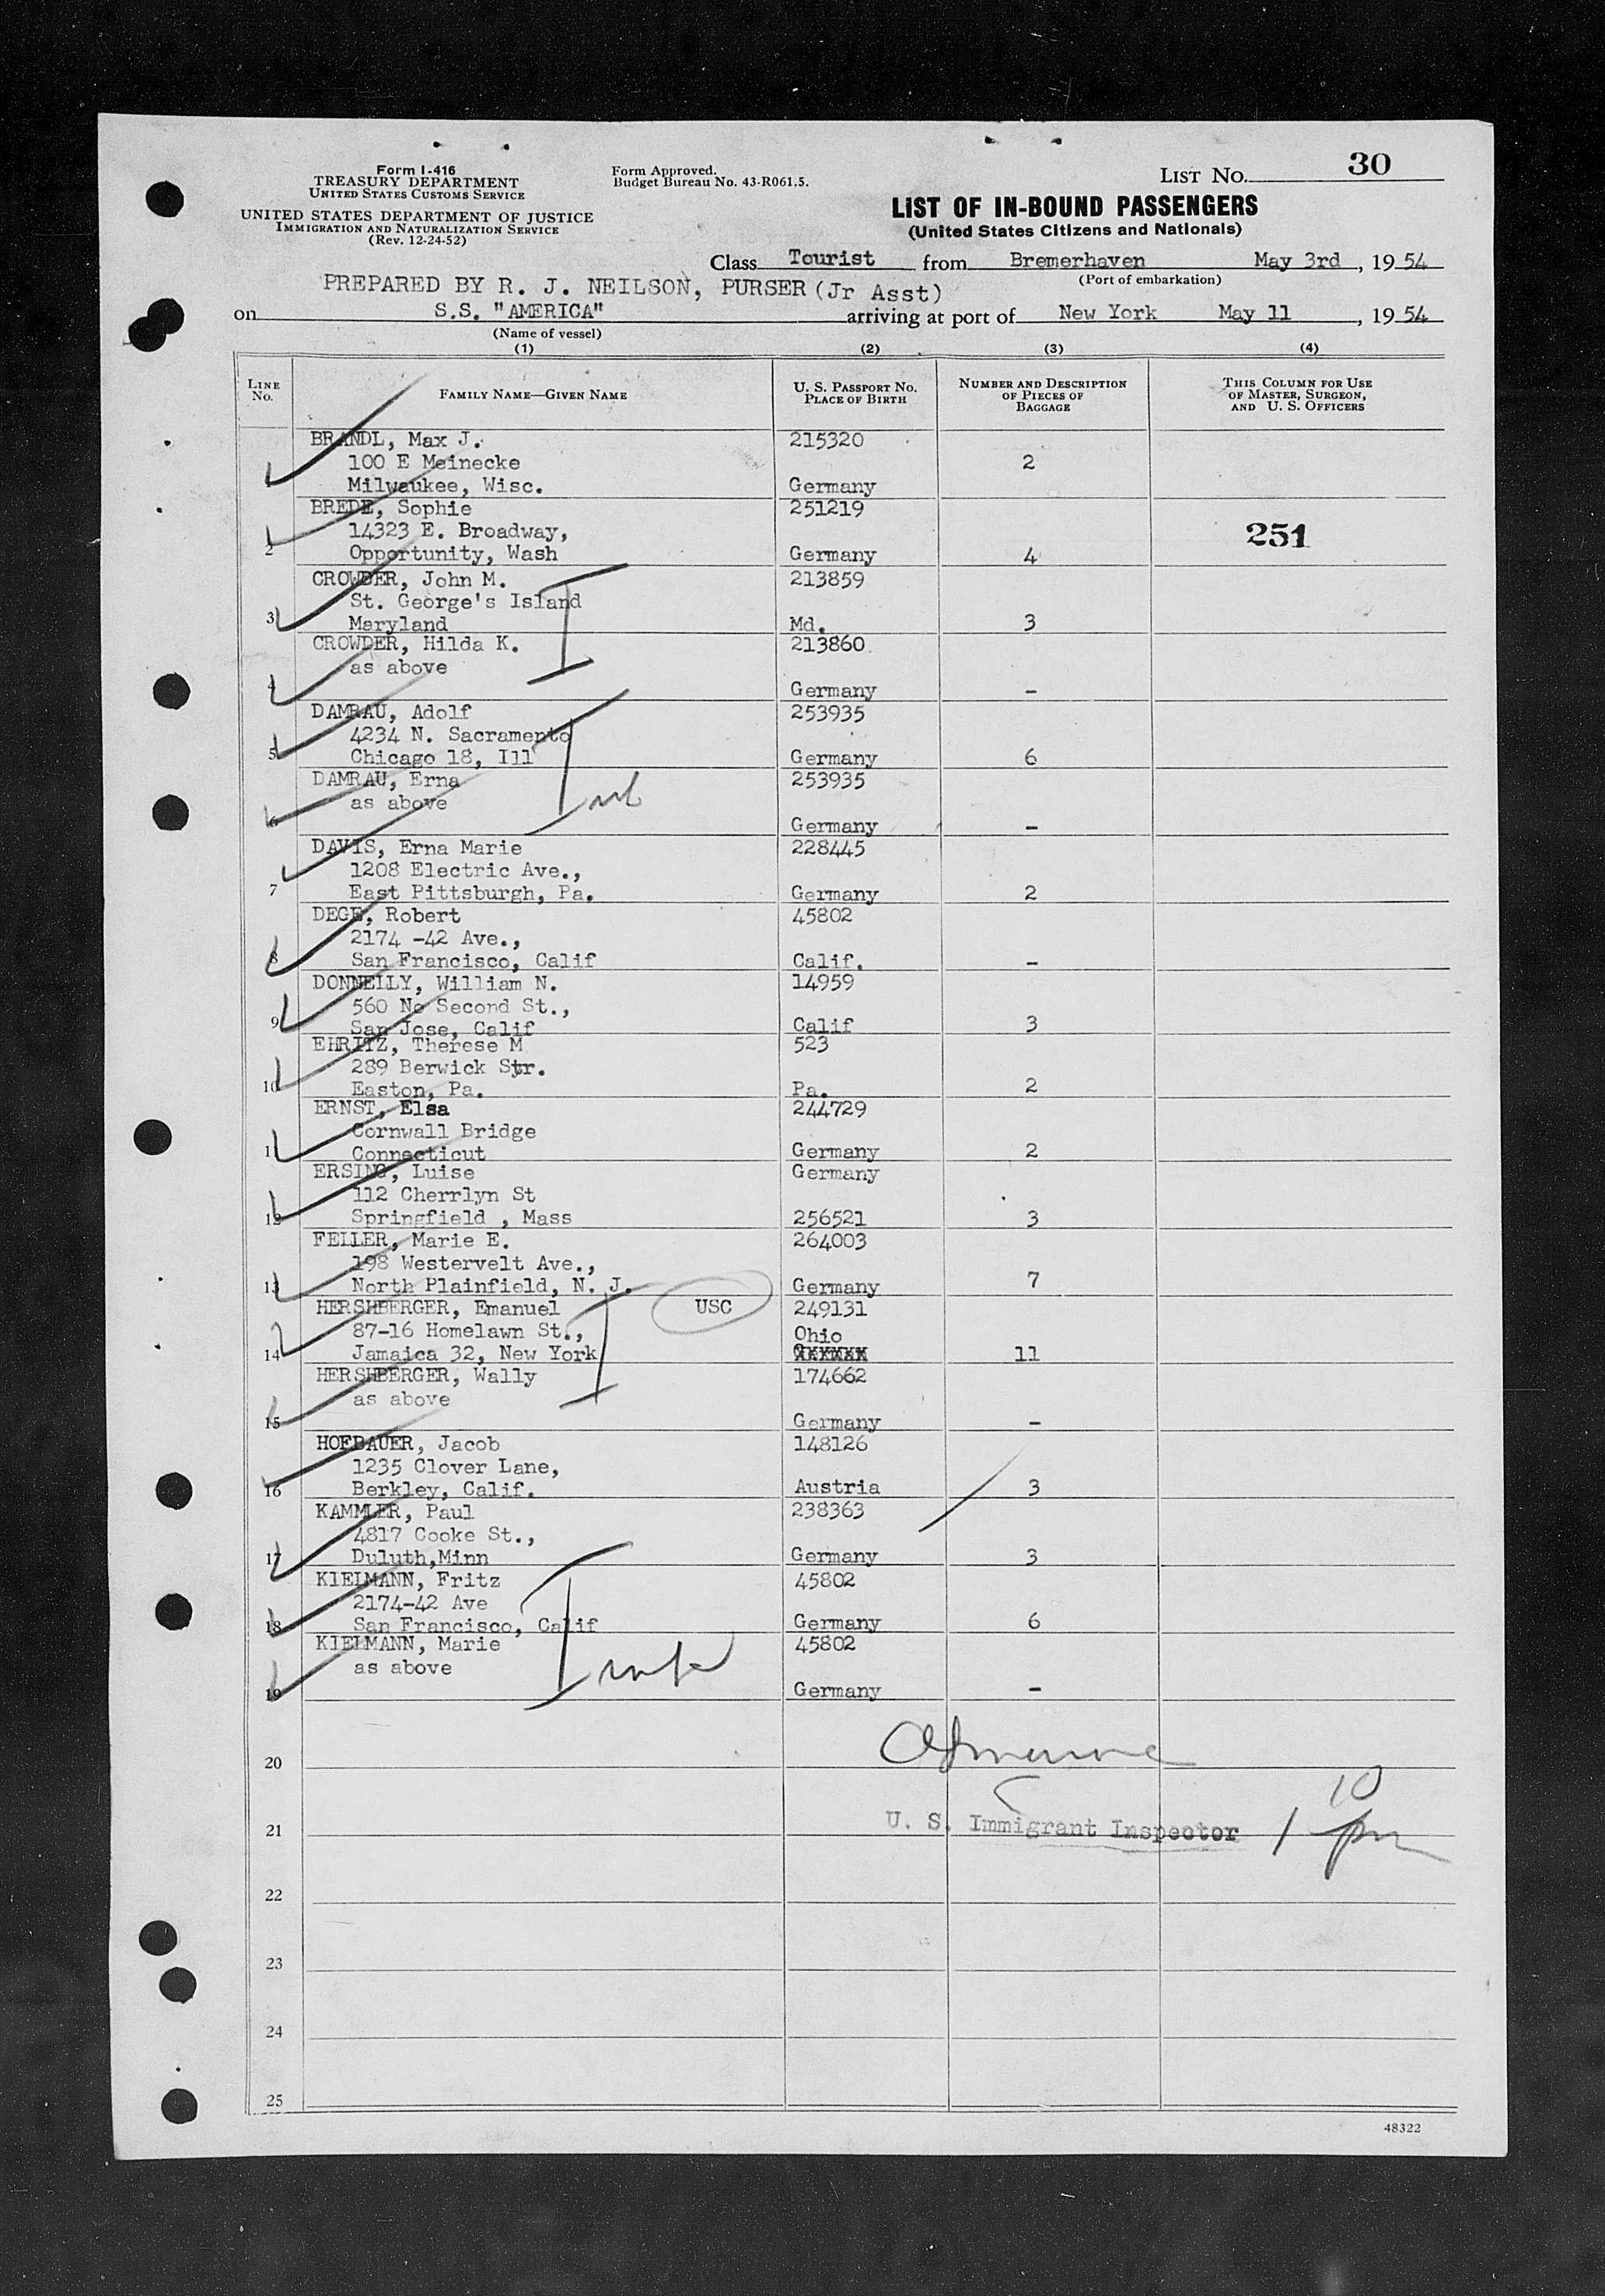 Form I-416
TREASURY DEPARTMENT
UNITED STATES CUSTOMS SERVICE
UNITED STATES DEPARTMENT OF JUSTICE
IMMIGRATION AND NATURALIZATION SERVICE
(Rev. 12-24-52)
Form Approved.
Budget Bureau No. 43-R061.5.
LIST No. 30
LIST OF IN-BOUND PASSENGERS
(United States Citizens and Nationals)
Class Tourist from Bremerhaven May 3rd, 1954
(Port of embarkation)
PREPARED BY R. J. NEILSON, PURSER (Jr Asst)
on S.S. "AMERICA" arriving at port of New York May 11, 1954
(Name of vessel)
(1) (2) (3) (4)
LINE No. FAMILY NAME—GIVEN NAME U. S. PASSPORT No. PLACE OF BIRTH NUMBER AND DESCRIPTION OF PIECES OF BAGGAGE THIS COLUMN FOR USE OF MASTER, SURGEON, AND U. S. OFFICERS
BRANDL, Max J. 215320
100 E Meinecke 2
1 Milwaukee, Wisc. Germany
BREDE, Sophie 251219
14323 E. Broadway, 251
2 Opportunity, Wash Germany 4
CROWDER, John M. 213859
St. George's Island
3 Maryland Md. 3
CROWDER, Hilda K. 213860
as above
4 Germany -
DAMRAU, Adolf 253935
4234 N. Sacramento
5 Chicago 18, Ill Germany 6
DAMRAU, Erna 253935
as above
6 Germany -
DAVIS, Erna Marie 228445
1208 Electric Ave.,
7 East Pittsburgh, Pa. Germany 2
DEGE, Robert 45802
2174 -42 Ave.,
8 San Francisco, Calif Calif. -
DONNELLY, William N. 14959
560 No Second St.,
9 San Jose, Calif Calif 3
EHRITZ, Therese M 523
289 Berwick Str.
10 Easton, Pa. Pa. 2
ERNST, Elsa 244729
Cornwall Bridge
11 Connecticut Germany 2
ERSING, Luise Germany
112 Cherrlyn St
12 Springfield , Mass 256521 3
FELLER, Marie E. 264003
198 Westervelt Ave.,
13 North Plainfield, N. J. Germany 7
HERSHBERGER, Emanuel USC 249131
87-16 Homelawn St., Ohio
14 Jamaica 32, New York 11
HERSHBERGER, Wally 174662
as above
15 Germany -
HOFBAUER, Jacob 148126
1235 Clover Lane,
16 Berkley, Calif. Austria 3
KAMMLER, Paul 238363
4817 Cooke St.,
17 Duluth,Minn Germany 3
KIELMANN, Fritz 45802
2174-42 Ave
18 San Francisco, Calif Germany 6
KIELMANN, Marie 45802
as above
19 Germany -
20
10
21 U. S. Immigrant Inspector 1 pm
22
23
24
25
48322